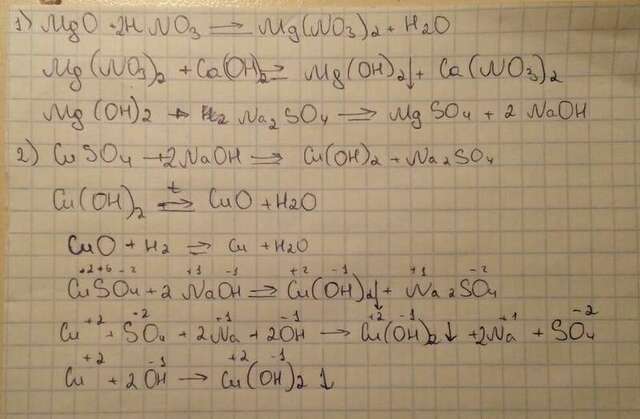 1) MgO + 2HNO₃ → Mg(NO₃)₂ + H₂O
Mg(NO₃)₂ + Ca(OH)₂ ⇌ Mg(OH)₂↓ + Ca(NO₃)₂
Mg(OH)₂ + Na₂SO₄ ⇌ MgSO₄ + 2NaOH
2) CuSO₄ + 2NaOH ⇌ Cu(OH)₂ + Na₂SO₄
Cu(OH)₂ ⇌ᵗ CuO + H₂O
CuO + H₂ ⇌ Cu + H₂O
+2 +6 -2 +1 -1 +2 -1 +1 -2
CuSO₄ + 2NaOH ⇌ Cu(OH)₂↓ + Na₂SO₄
Cu⁺² + SO₄⁻² + 2Na⁺¹ + 2OH⁻¹ → Cu⁺²(OH)⁻¹₂↓ + 2Na⁺¹ + SO₄⁻²
Cu⁺² + 2OH⁻¹ → Cu⁺²(OH)⁻¹₂↓